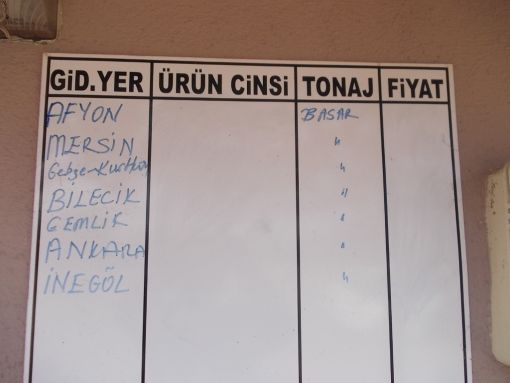 GİD.YER ÜRÜN CİNSİ TONAJ FİYAT
AFYON BASAR
MERSİN "
Gebze-Kurtköy "
BİLECİK "
GEMLİK "
ANKARA "
İNEGÖL "